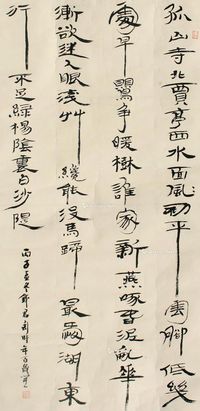 孤山寺北賈亭西水面風初平雲腳低幾
處早鶯爭暖樹誰家新燕啄春泥亂華
漸欲迷人眼淺草纔能沒馬蹄最愛湖東
行不足綠楊陰裏白沙隄
丙子孟冬